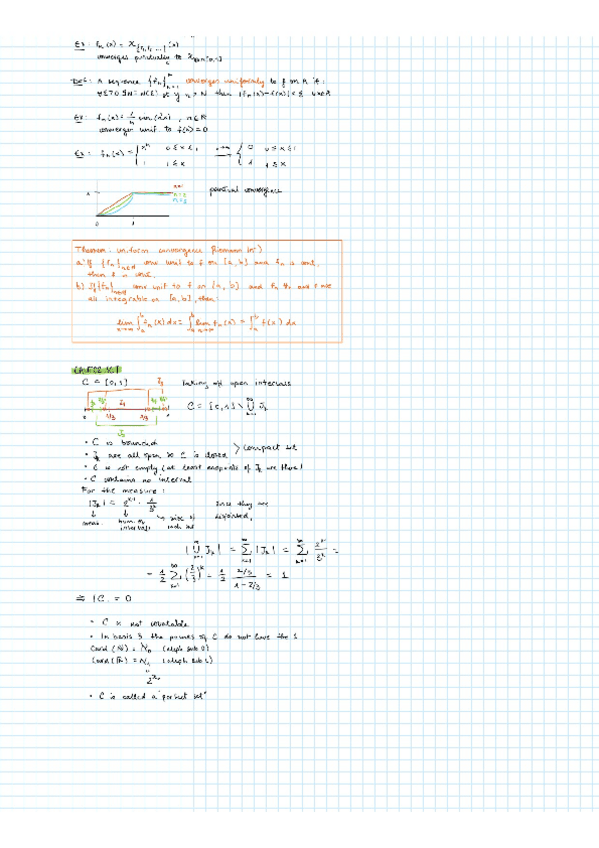 Ex: fn(x) = χ{r1, r2, ...}(x)
converges pointwise to
Def: A sequence {fn}n=1 converges uniformly to f on A if:
∀ε>0 ∃N=N(ε) if n > N then |fn(x)-f(x)| < ε ∀x∈A
Ex: fn(x) = 1/n sin(nx), n∈ℕ
converges unif. to f(x)=0
Ex: fn(x) = { x^n 0≤x≤1 { 0 0≤x≤1
1 1≤x 1 1≤x
pointwise convergence
n=1
n=2
n=3
0 1
Theorem: uniform convergence (Riemann int)
a) If {fn}n∈ℕ conv unif to f on [a, b] and fn is cont.
then f is cont.
b) If {fn}n∈ℕ conv unif to f on [a, b] and fn and f are
integrable on [a, b], then:
lim n→∞ ∫ fn(x) dx = ∫ lim n→∞ fn(x) = ∫ f(x) dx
C ⊂ [0, 1] Taking off open intervals
J1
C = [0, 1] \ ∪ Jk
1/3 2/3
J2
• C is bounded
• Jk are all open so C is closed > compact set
• C is not empty (at least endpoints of Jk are there)
• C contains no interval
For the measure:
|Jk| = 2^k-1 · 1/3^k since they are
num. of intervals size of each int disjointed,
|∪ Jk| = ∑ |Jk| = ∑ 2^k-1/3^k =
= 1/2 ∑ (2/3)^k = 1/2 2/3 / 1-2/3 = 1
⇒ |C| = 0
• C is not countable
• In basis 3 the points of C do not have the 1
Card (ℕ) = ℵ0 (aleph sub 0)
Card (ℝ) = ℵ1 (aleph sub 1)
2^ℵ0
• C is called a "perfect set"